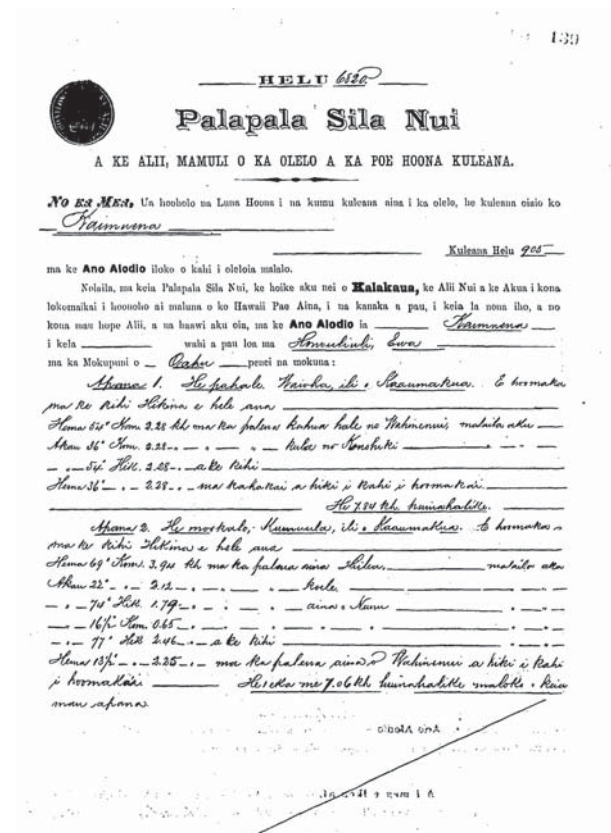 139
HELU 6520
Palapala Sila Nui
A KE ALII, MAMULI O KA OLELO A KA POE HOONA KULEANA.
No Ka Mea, Ua hooholo na Luna Hoona i na kumu kuleana aina i ka olelo, he kuleana oiaio ko
Kaimuena
Kuleana Helu 905
ma ke Ano Alodio iloko o kahi i oleloia malalo.
Nolaila, ma keia Palapala Sila Nui, ke hoike aku nei o Kalakaua, ke Alii Nui a ke Akua i kona
lokomaikai i hoonoho ai maluna o ko Hawaii Pae Aina, i na kanaka a pau, i keia la nona iho, a no
kona mau hope Alii, a ua haawi aku oia, ma ke Ano Alodio ia Kaimuena
i kela wahi a pau loa ma Honouliuli, Ewa
ma ka Mokupuni o Oahu penei na mokuna:
Apana 1. He pahale. Waioha, ili o Kaaumakua. E hoomaka
ma ke kihi Hikina e hele ana
Hema 54° Kom. 2.28 kh ma ka palena kahua hale no Wahinenui, malaila aku
Akau 36° Kom. 2.28 kula no Konohiki
54° Hik. 2.28 a ke kihi
Hema 36° 2.28 ma kahakai a hiki i kahi i hoomakai
He 7.84 kh. huinahalike.
Apana 2. He mookalo, ili o Kaaumakua. E hoomaka
ma ke kihi Hikina e hele ana
Hema 69° Kom. 3.94 kh ma ka palena aina malaila aku
Akau 22° 2.12 koele
74° Hik. 1.79 aina o Nunu
16½° Kom. 0.65
77° Hik 2.46 a ke kihi
Hema 13½° 2.25 ma ka palena aina o Wahinenui a hiki i kahi
i hoomakai 7.06 kh huinahalike maloko o keia
mau apana
Ano Alodio